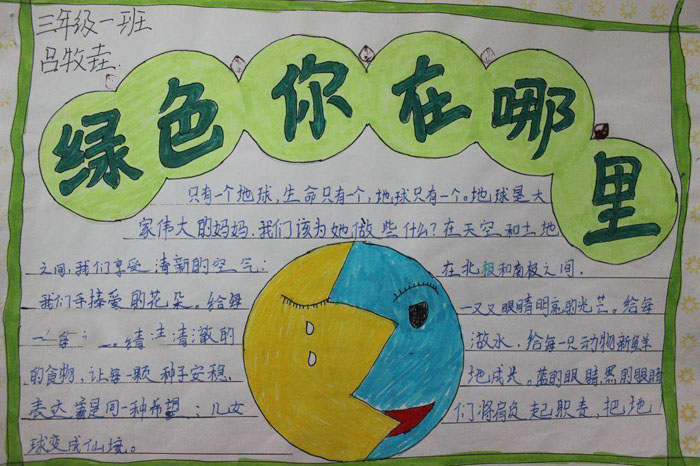 三年级一班
吕牧垚
绿色你在哪里
只有一个地球,生命只有一个,地球只有一个。地球是大
家伟大的妈妈.我们该为她做些什么?在天空和土地
之间,我们享受清新的空气: 在北极和南极之间,
我们手捧爱的花朵。给每 一双眼睛明亮的光芒。给每
清澈的 水.给每一只动物新鲜
的食物,让每一颗种子安稳, 地成长。蓝的眼睛,黑的眼睛
表达着是同一种希望:儿女 们将肩负起职责,把地
球变成仙境。